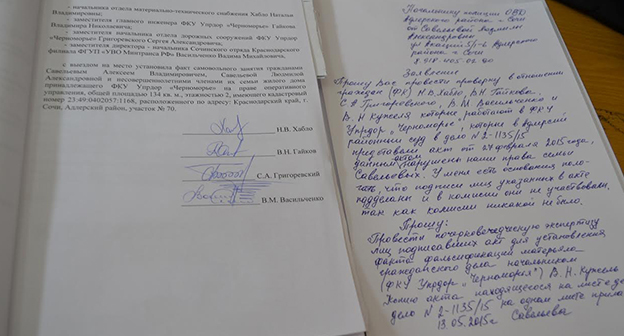 - начальника отдела материально-технического снабжения Хабло Натальи
Владимировны;
- заместителя главного инженера ФКУ Упрдор «Черноморье» Гайкова
Владимира Николаевича,
- заместителя начальника отдела дорожных сооружений ФКУ Упрдор
«Черноморье» Григоревского Сергея Александровича;
- заместителя директора - начальника Сочинского отряда Краснодарского
филиала ФГУП «УВО Минтранса РФ» Васильченко Вадима Михайловича,
с выездом на место установила факт самовольного занятия гражданами
Савельевым Алексеем Владимировичем, Савельевой Людмилой
Александровной и несовершеннолетними членами их семьи жилого дома
принадлежащего ФКУ Упрдор «Черноморье» на праве оперативного
управления, общей площадью 134 кв. м., этажностью 2, имеющего кадастровый
номер 23:49:0402057:1168, расположенного по адресу: Краснодарский край, г.
Сочи, Адлерский район, участок № 70.
Н.В. Хабло
В.Н. Гайков
С.А. Григоревский
В.М. Васильченко
Начальнику полиции ОВД
Адлерского района г. Сочи
от Савельевой Людмилы
Александровны
Адлерского
района г. Сочи
Заявление
Прошу Вас провести проверку в отношении
граждан Н.В. Хабло, В.Н. Гайкова,
С.А. Григоревского, В.М. Васильченко и
В.Н. Кужеля которые, работают в ФКУ
Упрдор „Черноморье", которые в Адлерский
районный суд в дело N 2-1135/15
предоставили акт от 24 февраля 2015 года,
данным актом нарушены наши права семьи
Савельевых. У меня есть основания пола-
гать, что подписи лиц указанных в акте
подделаны и в комиссии они не участвовали,
так как комиссии никакой не было.
Прошу:
Провести почерковедческую экспертизу
лиц подписавших акт для установления
факта фальсификации материалов
гражданского дела начальником
(ФКУ Упрдор „Черноморья") В.Н. Кужель
Копию акта находящегося на
дело N 2-1135/15 на одном листе
13.05.2015г Савельева